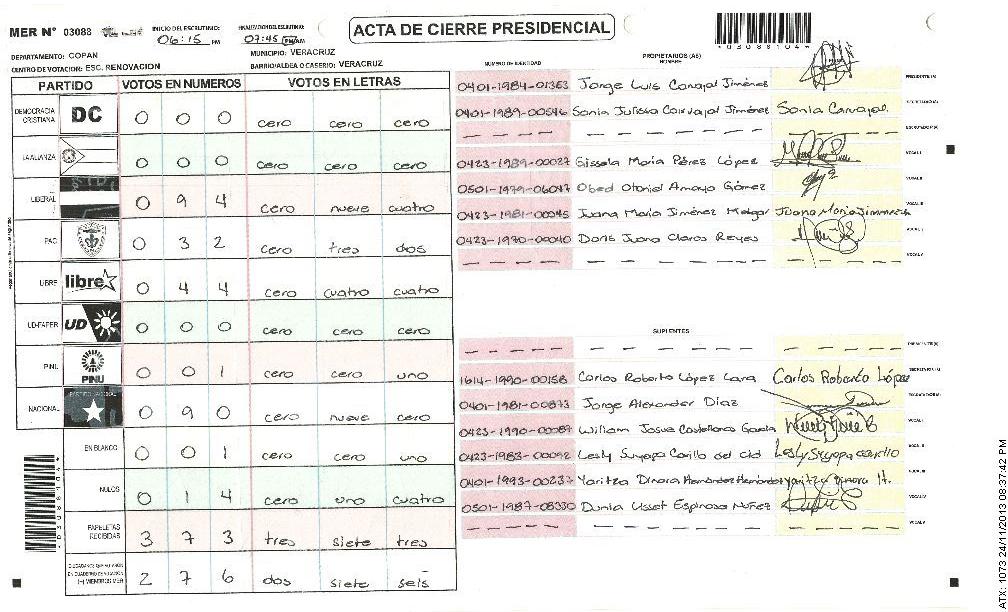 MER N° 03088
INICIO DEL ESCRUTINIO: 06:15 PM
FINALIZACION DEL ESCRUTINIO: 07:45 PM/AM
ACTA DE CIERRE PRESIDENCIAL
DEPARTAMENTO: COPAN
MUNICIPIO: VERACRUZ
CENTRO DE VOTACION: ESC. RENOVACION
BARRIO/ALDEA O CASERIO: VERACRUZ
PARTIDO VOTOS EN NUMEROS VOTOS EN LETRAS
DEMOCRACIA CRISTIANA DC 0 0 0 cero cero cero
LA ALIANZA 0 0 0 cero cero cero
LIBERAL 0 9 4 cero nueve cuatro
PAC 0 3 2 cero tres dos
LIBRE libre 0 4 4 cero cuatro cuatro
UD-FAPER UD 0 0 0 cero cero cero
PINU PINU 0 0 1 cero cero uno
NACIONAL 0 9 0 cero nueve cero
EN BLANCO 0 0 1 cero cero uno
NULOS 0 1 4 cero uno cuatro
PAPELETAS RECIBIDAS 3 7 3 tres siete tres
(+) MIEMBROS MER 2 7 6 dos siete seis
NUMERO DE IDENTIDAD
PROPIETARIOS (AS)
NOMBRE
0401-1984-01363 Jorge Luis Carvajal Jiménez
0401-1989-00546 Sonia Julissa Carvajal Jiménez Sonia Carvajal
0423-1989-00027 Gissela Maria Pérez López VOCAL I
0501-1979-06047 Obed Otoniel Amaya Gómez
0423-1981-00045 Juana Maria Jiménez Melgar Juana Maria Jimenez
0423-1970-00040 Doris Juana Claros Reyes
VOCAL V
SUPLENTES
1614-1990-00158 Carlos Roberto López Lara Carlos Roberto López
0401-1981-00873 Jorge Alexander Díaz
0423-1990-00087 William Josue Castellanos García
0423-1983-00092 Lesly Suyapa Carillo del cid Lesly Suyapa carillo
0401-1993-00237 Yaritza Dinora Hernández Hernández yaritza Dinora H.
0501-1987-08330 Dunia Lisset Espinosa Nuñez
VOCAL V
ATX: 1073 24/11/2013 08:37:42 PM